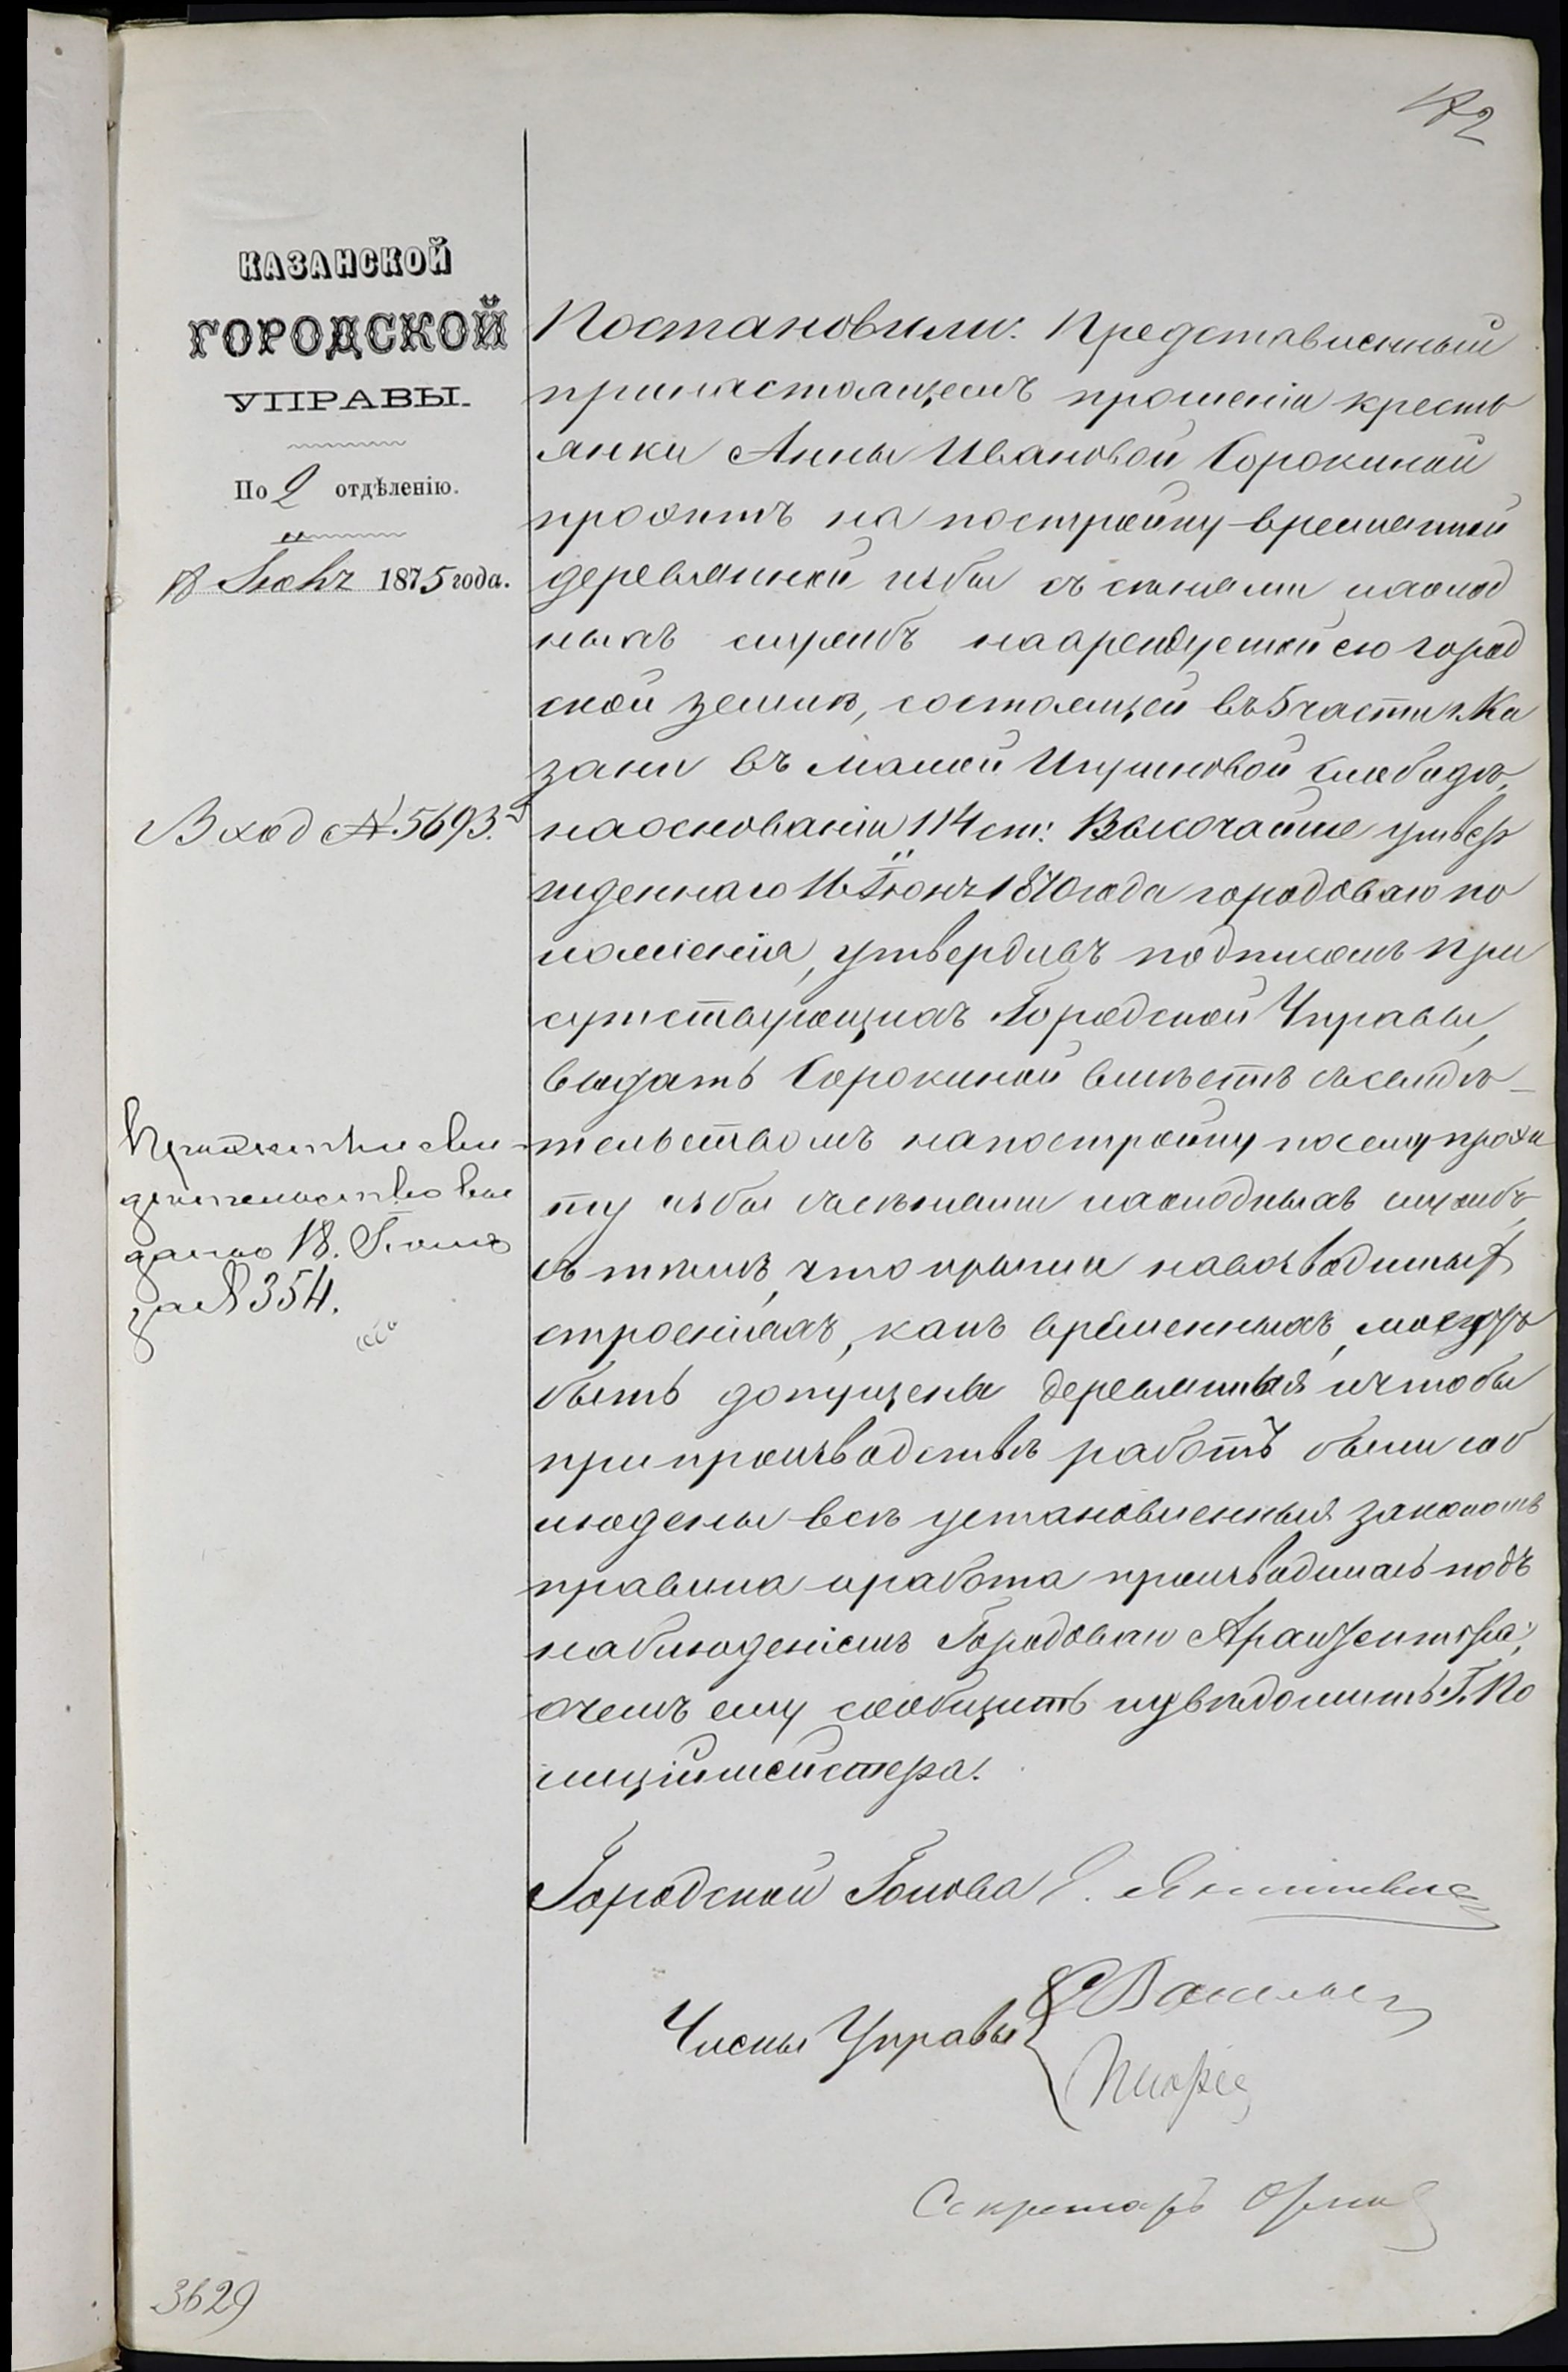 КАЗАНСКОЙ
ГОРОДСКОЙ
УПРАВЫ.
По 2 отдѣленію.
18 Іюня 1875 года.
Вход № 5693.
сви-
дѣтельство вы
дано 18. Іюня
за № 354.
Постановили: Представленный
принастоящемъ прошеніи кресть
янки Анны Ивановой Сорокиной
проэктъ на постройку временной
деревянной избы съ сѣнями и холод
ныхъ службъ наарендуемой ею город
ской землѣ, состоящей въ 5 части г. Ка
зани въ малой Игумновой слободѣ,
наоснованіи 114 ст: Высочайше утвер
жденнаго 16 Іюня 1870 года городоваго по
ложенія, утвердивъ подписомъ при
сутствующихъ Городской Управы,
выдать Сорокиной вмѣстѣ съ свидѣ-
тельствомъ напостройку посему проэк
ту избы съсѣнями ихолодныхъ службъ,
съ тѣмъ, что крыши навозводимыхъ
строеніяхъ, какъ временныхъ, могутъ
быть допущены деревянныя ичтобы
припроизводствѣ работъ были соб
людены всѣ установленныя закономъ
правила иработа производилась подъ
наблюденіемъ Городоваго Архитектора;
очемъ ему сообщить иувѣдомить Г. По
лиціймейстера.
Городской Голова
Члены Управы
Секретарь
3629